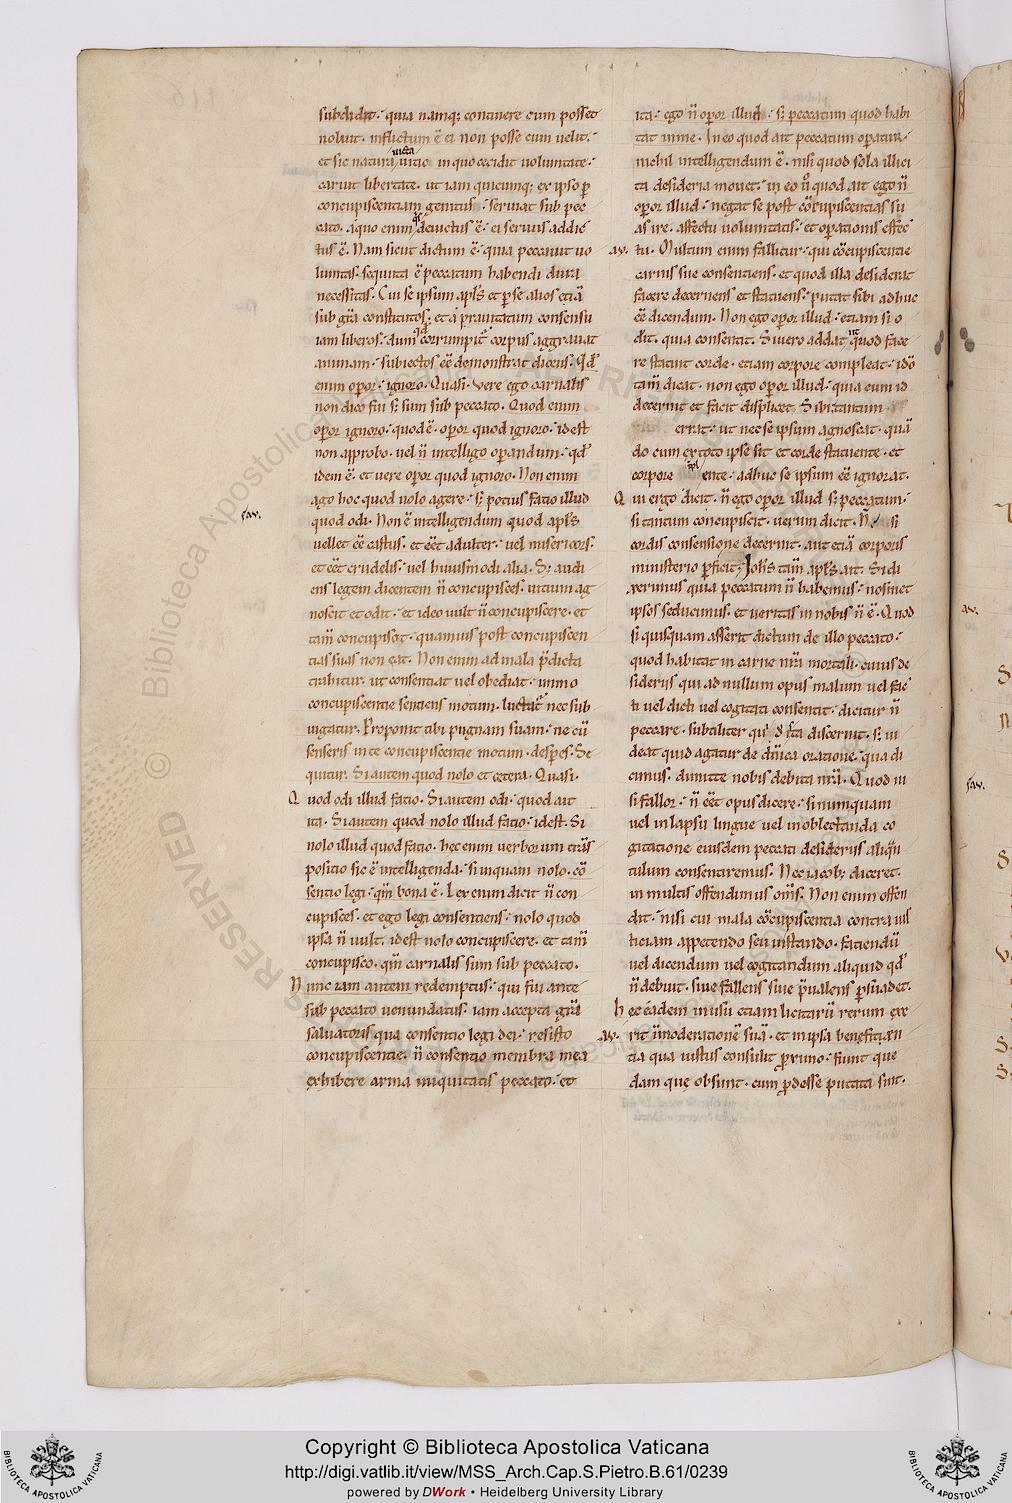 subdidit. quia namq; continere cum posset
noluit. inflictum ē ei non posse cum velit.
et sic natura victa vitio in quo cecidit voluntate.
caruit libertate. ut iam quicumq; ex ipso p
concupiscentiam genitus. serviat sub pec
cato. a quo enim qis devictus ē. ei servus addic
tus ē. Nam sicut dictum ē. quia peccavit vo
luntas. sequuta ē peccatum habendi dura
necessitas. Cui se ipsum apls et p se alios etiā
sub gra constitutos. et a pravitatum consensu
iam liberos. dum qd corrumpit corpus aggravat
animam. subiectos eē demonstrat dicens. Qd
enim opor. ignoro. Quasi. vere ego carnalis
non dico fui s; sum sub peccato. Quod enim
opor ignoro. quod ē. opor quod ignoro. id est
non approbo. vel ñ intelligo operandum. qd
idem ē. et vere opor quod ignoro. Non enim
ago hoc quod volo agere. s; potius facio illud
quod odi. Non ē intelligendum quod apls
vellet eē castus. et eēt adulter. vel misericors.
et eēt crudelis. vel huiusmodi alia. S; audi
ens legem dicentem ñ concupisces. vitium ag
noscit et odit. et ideo vult ñ concupiscere. et
tam concupiscit. quamvis post concupiscen
tias suas non eat. Non enim ad mala pdicta
trahitur. ut consentiat vel obediat. immo
concupiscentie sentiens motum. luctat nec sub
iugatur. Proponit tibi pugnam suam. ne cū
senseris in te concupiscentie motum. despes. Se
quitur. Si autem quod nolo et cetera. Quasi.
Quod odi illud facio. Si autem odi. quod ait
ita. Si autem quod nolo illud facio. id est. Si
nolo illud quod facio. hec enim verborum trās
positio sic ē intelligenda. si inquam nolo. cō
sentio legi. qm bona ē. Lex enim dicit ñ con
cupisces. et ego legi consentiens. nolo quod
ipsa ñ vult. id est nolo concupiscere. et tam
concupisco. qm carnalis sum sub peccato.
Nunc iam autem redemptus. qui fui ante
sub peccato venundatus. iam accepta gra
salvatoris qua consentio legi dei. resisto
concupiscentie. ñ consentio membra mea
exhibere arma iniquitatis peccato. et
ita. ego ñ opor illud. s; peccatum quod habi
tat in me. In eo quod ait peccatum operatur.
nichil intelligendum ē. nisi quod sola illici
ta desideria movet. in eo v quod ait ego ñ
opor illud. negat se post cōcupiscentias su
as ire. affectu voluntatis. et operationis effec
av. tu. Multum enim fallitur. qui cōcupiscentie
carnis sue consentiens. et quod illa desiderat
facere decernens et statuens. putat sibi adhuc
eē dicendum. Non ego opor illud. etiam si o
dit. quia consentit. Si vero addat ut quod face
re statuit corde. etiam corpore compleat. ido
tam dicat. non ego opor illud. quia cum id
decernit et facit displicet. Sibi tantum
errat. ut nec se ipsum agnoscat. quā
do cum ex toto ipse sit et corde statuente. et
corpore ente. adhuc se ipsum eē ignorat.
Qui ergo dicit. ñ ego opor illud s; peccatum.
fav. si tantum concupiscit. verum dicit. Ñ si
cordis consensione decernit. aut etiā corporis
ministerio pficit. Iohs tam apls ait. Si di
xerimus quia peccatum ñ habemus. nosmet
ipsos seducimus. et veritas in nobis ñ ē. Quod
si quisquam asserit dictum de illo peccato.
quod habitat in carne nra mortali. cuius de
sideriis qui ad nullum opus malum vel fac
ti vel dicti vel cogitati consentit. dicitur ñ
peccare. subtiliter discernit. s; vi
deat quid agatur de dnica oratione. qua di
cimus. dimitte nobis debita nra. Quod ni
si fallor. ñ eēt opus dicere. si numquam
vel in lapsu lingue vel in oblectanda co
gitatione eiusdem peccati desideriis aliqn
tulum consentiremus. Nec iacob; diceret.
in multis offendimus oms. Non enim offen
dit. nisi cui mala cōcupiscentia contra ius
ticiam appetendo seu instando. faciendū
vel dicendum vel cogitandum aliquid qd
ñ debuit. sive fallens sive pvalens psuadet.
hec eadem in usu etiam licitarū rerum exe
av. rit immoderatione suā. et in ipsa beneficen
tia qua iustus consulit pximo. fiunt que
dam que obsunt. cum pdesse putata sint.
av.
fav.
Copyright © Biblioteca Apostolica Vaticana
http://digi.vatlib.it/view/MSS_Arch.Cap.S.Pietro.B.61/0239
powered by DWork • Heidelberg University Library
BIBLIOTECA APOSTOLICA VATICANA
BIBLIOTECA APOSTOLICA VATICANA